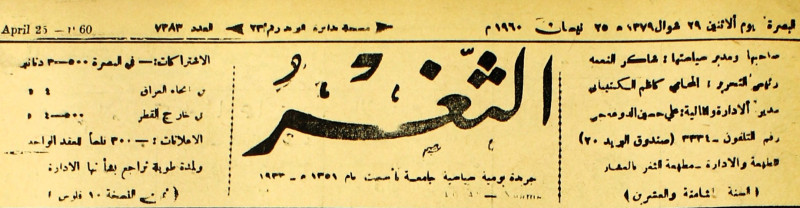 البصرة: يوم ألاثنين ٢٩ شوال ١٣٧٩ ه ٢٥ نيسان ١٩٦٠ م
مسجلة بدائرة البريد رقم ٢٣
العدد ٧٣٨٣
April 25 — 60
صاحبها ومدير سياستها: شاكر النعمه
رئيس التحرير: المحامي كاظم
مدير الادارة والمالية: علي حسين
رقم التلفون – ٣٣٣٤ (صندوق البريد ٢٠)
المطبعة والادارة – مطبعة الثغر بالعشار
(السنة الثامنة والعشرين)
الثغر
جريدة يومية سياسية جامعة تأسست عام ١٣٥١ ه – ١٩٣٣
الاشتراكات: — في البصرة ٥٠٠–٣ دنانير
في انحاء العراق ٤
في خارج القطر ٥٠٠–٤
الاعلانات: – ٣٠٠ فلساً للعقد الواحد
ولمدة طويلة تراجع بشأنها الادارة
(ثمن النسخة ١٠ فلوس)